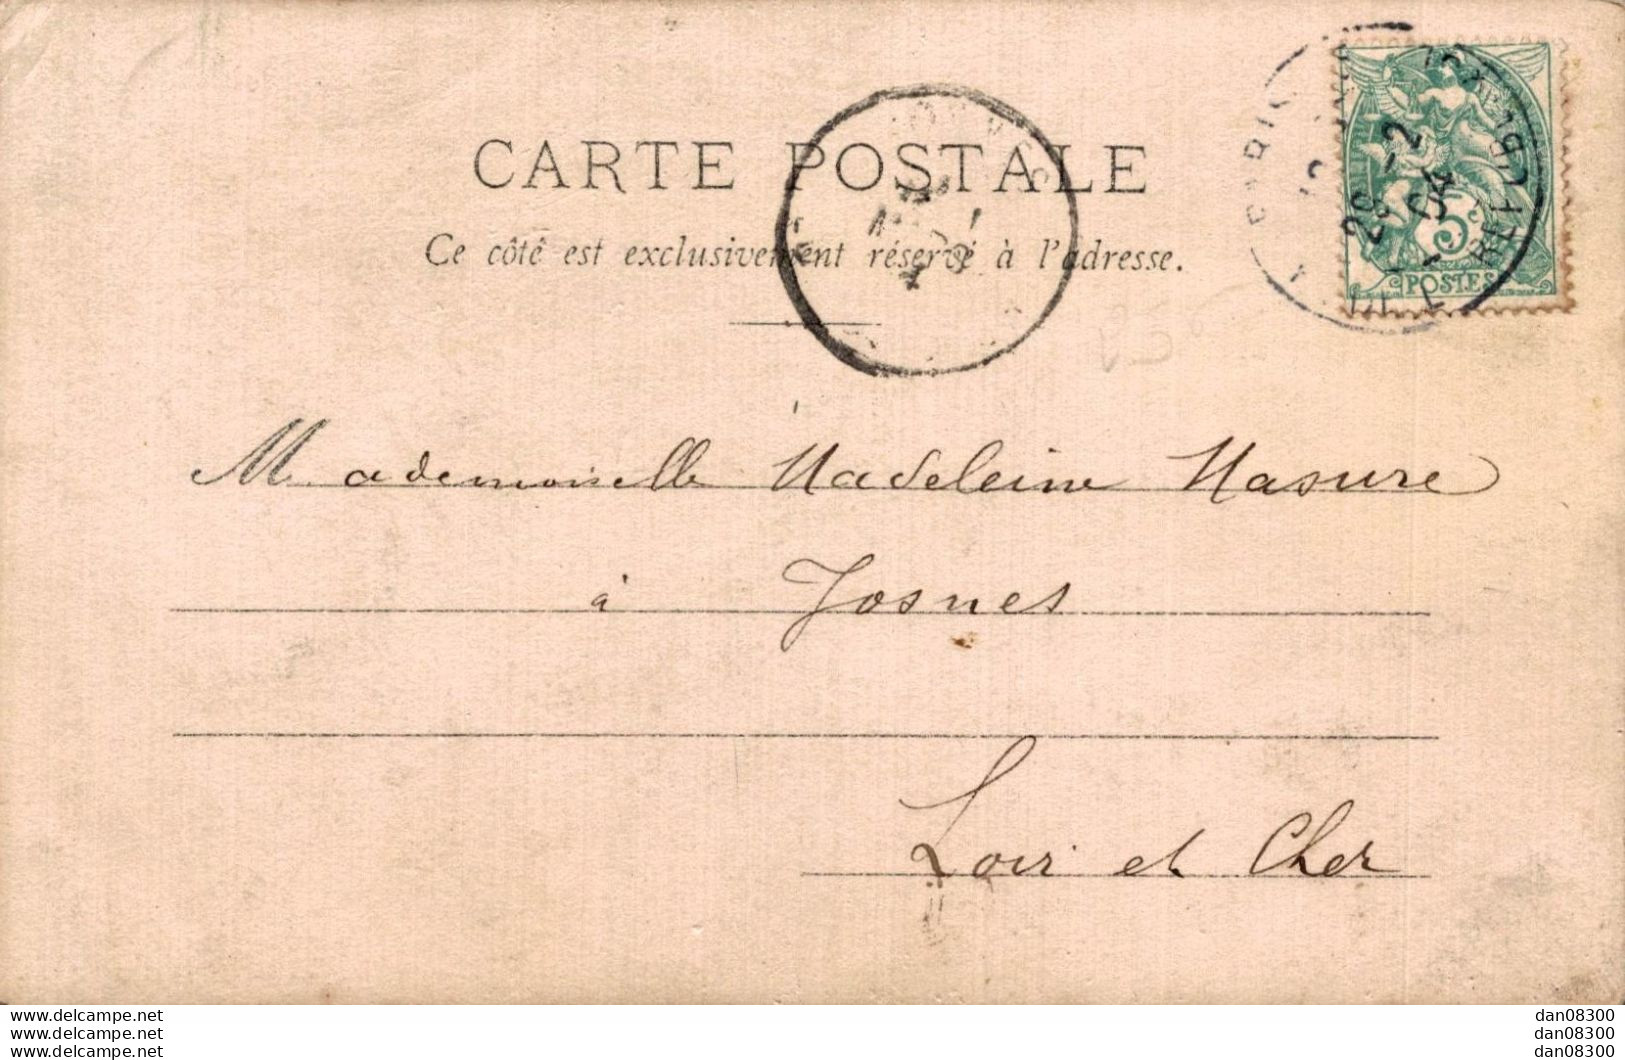 CARTE POSTALE
Ce côté est exclusivement réservé à l'adresse.
28 -2
04
5c
POSTES
Mademoiselle Madeleine Masure
à Josnes
Loir et Cher
www.delcampe.net
www.delcampe.net
www.delcampe.net
dan08300
dan08300
dan08300